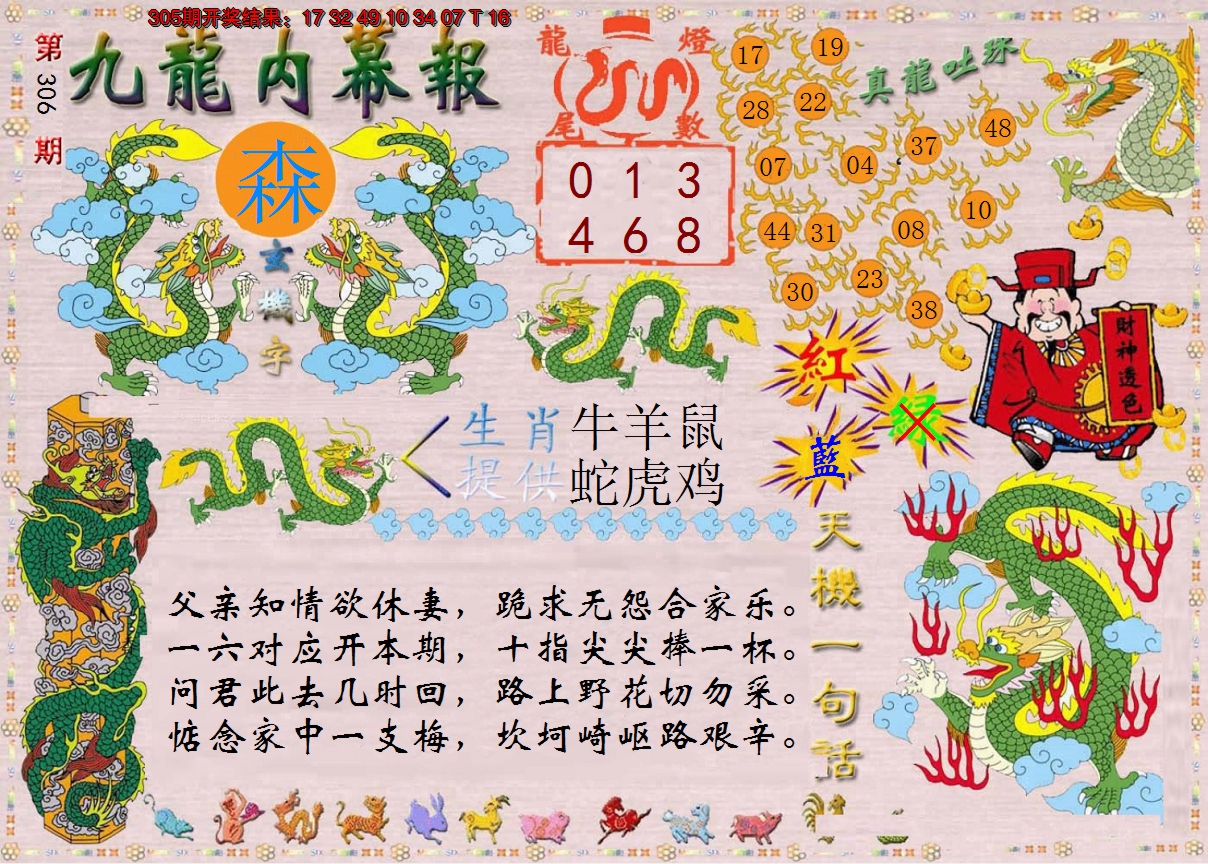 305期开奖结果：17 32 49 10 34 07 T 16
第306期
九龍内幕報
森
玄機字
龍燈尾數
0 1 3
4 6 8
真龍吐珠
17 19
28 22
07 04 37 48
44 31 08 10
30 23 38
財神透色
紅
绿
藍
生肖 牛羊鼠
提供 蛇虎鸡
天機一句話
父亲知情欲休妻，跪求无怨合家乐。
一六对应开本期，十指尖尖捧一杯。
问君此去几时回，路上野花切勿采。
惦念家中一支梅，坎坷崎岖路艰辛。